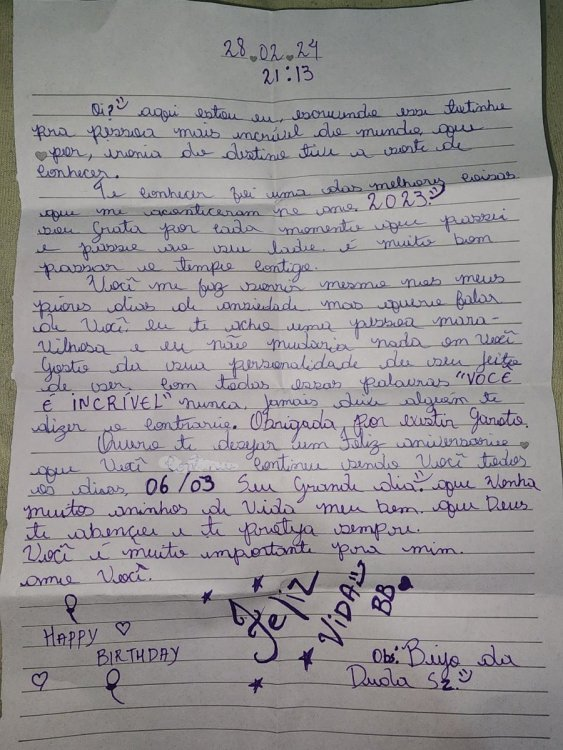 28.02.24
21:13
Oi? aqui estou eu, escrevendo esse textinho
pra pessoa mais incrível do mundo, que
por, ironia do destino tive a sorte de
conhecer.
Te conhecer foi uma das melhores coisas
que me aconteceram no ano 2023.
sou Grata por cada momento que passei
e passo ao seu lado. é muito bom
passar o tempo contigo.
Você me faz sorrir mesmo nos meus
piores dias de ansiedade mas quero falar
de Você eu te acho uma pessoa mara-
Vilhosa e eu não mudaria nada em Você
Gosto da sua personalidade do seu jeito
de ser. com todas essas palavras "VOCÊ
É INCRÍVEL" nunca, jamais deixe alguém te
dizer o contrario. Obrigada, por existir Garoto.
Quero te desejar um Feliz aniversario
que Você continue sendo Você todos
os dias, 06/03 Seu Grande dia. que Venha
muitos aninhos de Vida meu bem. que Deus
te abençoe e te proteja sempre.
Você é muito importante pra mim.
amo Você.
Feliz
VIDA
BB
HAPPY
BIRTHDAY
Obs: Beijo da
Duda Sz.